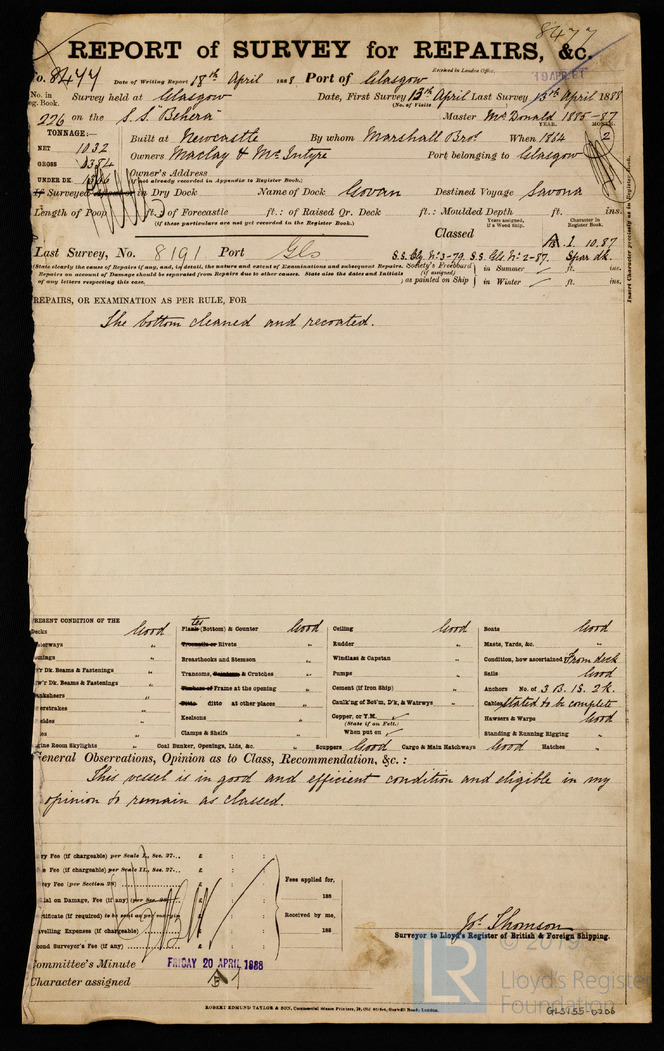 8477
REPORT of SURVEY for REPAIRS, &c.
Received in London Office,
No. 8477 Date of Writing Report 18th April 1888 Port of Glasgow
19 APR
No. in Survey held at Glasgow Date, First Survey 13th April Last Survey 13th April 1888
Reg. Book. (No. of Visits )
226 on the S.S. "Behera" Master McDonald 1885-87
TONNAGE:— YEAR. MONTH.
Built at Newcastle By whom Marshall Bros. When 1864 2
NET 1032
GROSS Owners Maclay & McIntyre Port belonging to Glasgow
UNDER DK. Owner's Address
(if not already recorded in Appendix to Register Book.)
If Surveyed Afloat or in Dry Dock Name of Dock Govan Destined Voyage Savona
Length of Poop ft.; of Forecastle ft.; of Raised Qr. Deck ft.; Moulded Depth ft. ins.
(if these particulars are not yet recorded in the Register Book.)
Years assigned, if a Wood Ship. Character in Register Book.
Classed A 1. 10.87
Last Survey, No. 8191 Port Gls S.S. Gls. No. 3-79. S.S. Gls. No. 2-87. Spar dk.
(State clearly the cause of Repairs if any, and, in detail, the nature and extent of Examinations and subsequent Repairs.
Repairs on account of Damage should be separated from Repairs due to other causes. State also the dates and Initials
of any letters respecting this case.
Society's Freeboard (if assigned) as painted on Ship in Summer ft. ins.
in Winter ft. ins.
Insert Character precisely as in Register Book.
REPAIRS, OR EXAMINATION AS PER RULE, FOR
The bottom cleaned and recoated.
PRESENT CONDITION OF THE
Decks Good Planks tes (Bottom) & Counter Good Ceiling Good Boats Good
Waterways " Treenails or Rivets " Rudder " Masts, Yards, &c. "
Breasthooks and Stemson " Windlass & Capstan " Condition, how ascertained From deck
Dk. Beams & Fastenings " Transoms, & Crutches " Pumps " Sails Good
Dk. Beams & Fastenings " Frame at the opening " Cement (if Iron Ship) " Anchors No. of 3 B. 1S. 2k.
Planksheers " Ditto ditto at other places " Caulk'ng of Bot'm, D'k, & Watrwys " Cables stated to be complete
Keelsons " Copper, or Y.M. Hawsers & Warps Good
(State if on Felt.)
Clamps & Shelfs " When put on Standing & Running Rigging "
Engine Room Skylights " Coal Bunker, Openings, Lids, &c. " Scuppers Good Cargo & Main Hatchways Good Hatches "
General Observations, Opinion as to Class, Recommendation, &c. :
This vessel is in good and efficient condition and eligible in my
opinion to remain as classed.
Fee (if chargeable) per Scale I., Sec. 27... £ : :
Fee (if chargeable) per Scale II., Sec. 27... £ : : Fees applied for,
Fee (per Section 28) £ : : 188
on Damage, Fee (if any) £ : : Received by me,
Certificate (if required) £ : :
Travelling Expenses (if chargeable) £ : : 188
Second Surveyor's Fee (if any) £ : :
Jos. Thomson
Surveyor to Lloyd's Register of British & Foreign Shipping.
Committee's Minute FRIDAY 20 APRIL 1888
Character assigned A 1
ROBERT EDMUND TAYLOR & SON, Commercial Steam Printers, 19, Old Street, Goswell Road, London.
LR
Lloyd's Register
Foundation
GLS155-0206